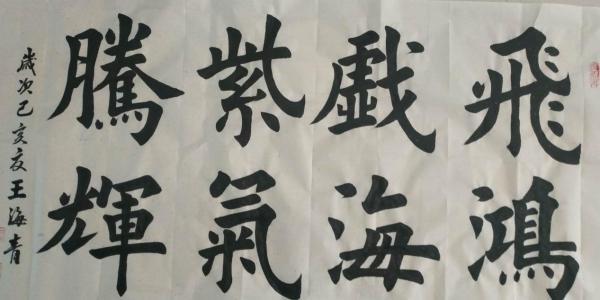 飛鴻
戲海
紫氣
騰輝
歲次己亥夏王海青